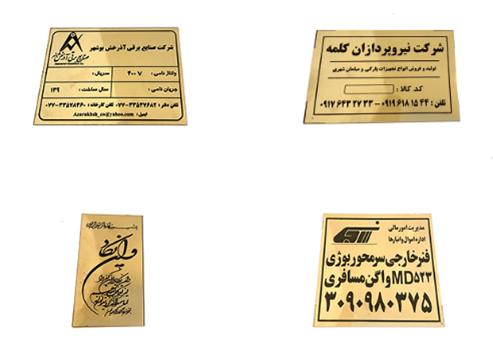 شرکت صنایع برقی آذرخش بوشهر
صنایع برقی آذرخش
ولتاژ نامی : ۴۰۰ V سریال :
جریان نامی : سال ساخت : ۱۳۹
تلفن دفتر : ۳۳۵۴۷۶۸۲-۰۷۷ تلفن کارخانه : ۳۳۵۷۸۴۶۰-۰۷۷
ایمیل: Azarakhsh_co@yahoo.com
شرکت نیروپردازان کلمه
تولید و فروش انواع تجهیزات پارکی و مبلمان شهری
کد کالا :
تلفن : ۰۹۱۹ ۶۱۸ ۱۵ ۴۴ – ۰۹۱۷ ۶۴۳ ۲۷ ۳۳
و ان یکاد
مدیریت امور مالی
اداره اموال و انبارها
فنر خارجی سر محور بوژی
MD۵۲۳ واگن مسافری
۳۰۹۰۹۸۰۳۷۵